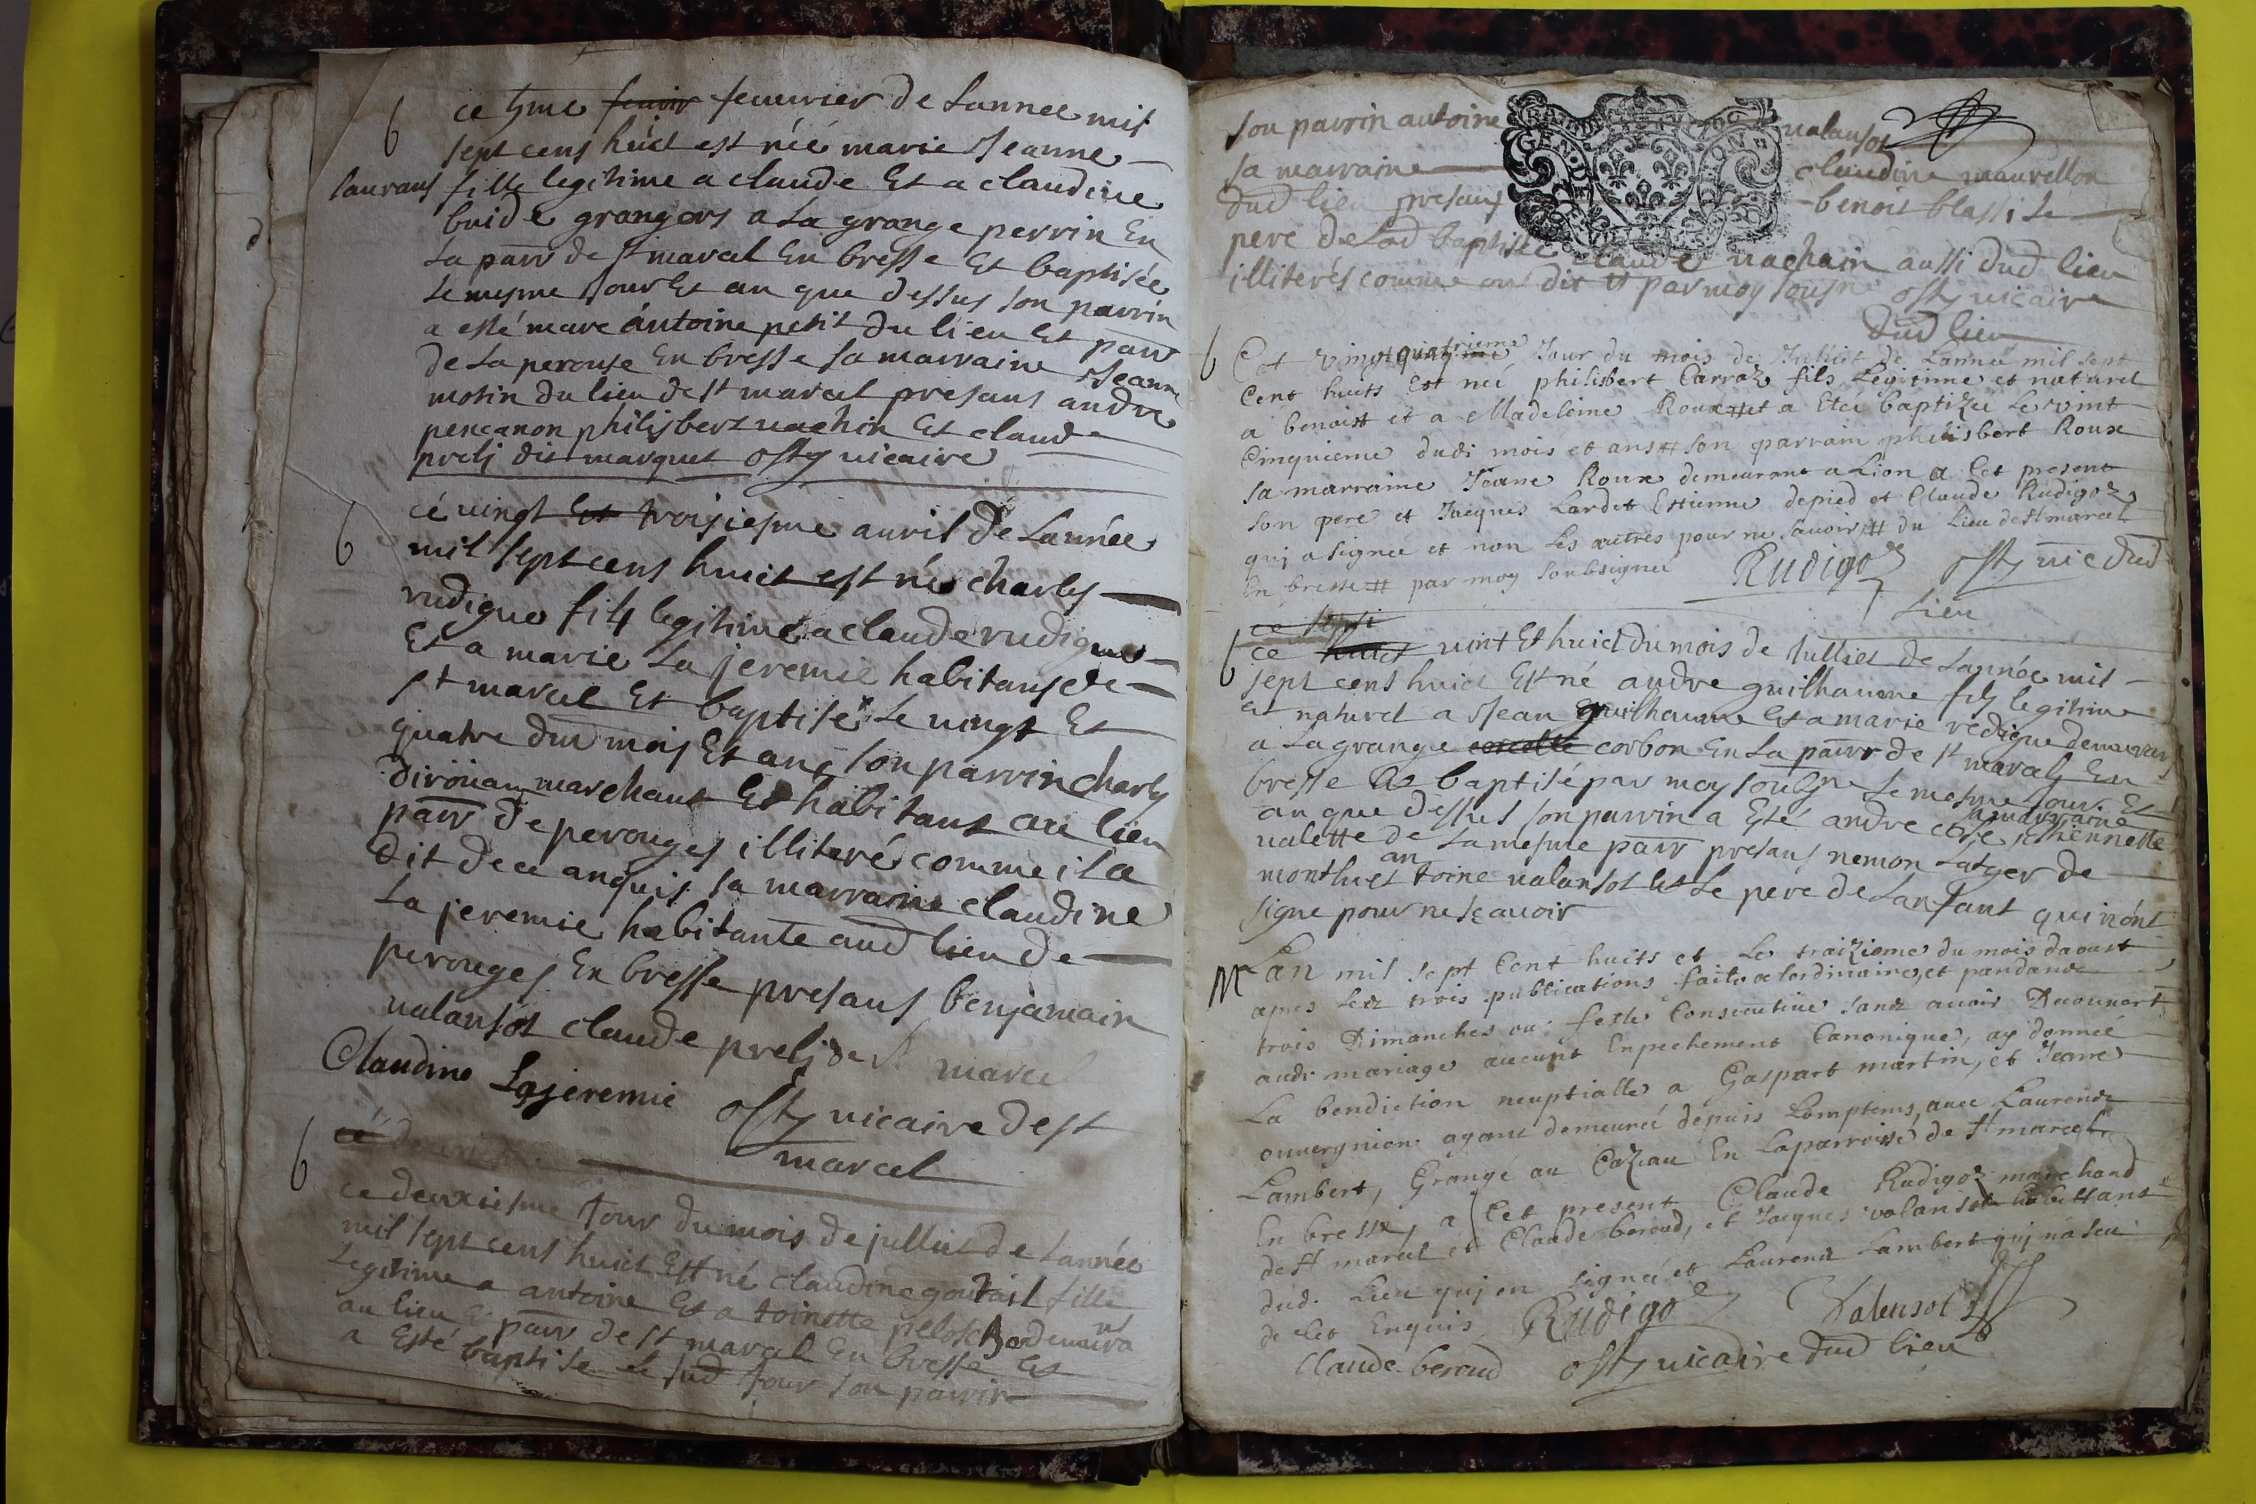 b ce 5me feuvrier de lannee mil
sept cens huict est néé marie Jeanne
laurans fille legitime a claude Et a claudine
buide grangers a la grange perrin En
la parr de st marcel En bresse Et baptisée
le mesme Jour Et an que dessus son parrin
a esté marc antoine petit du lieu Et parr
de la perouse En bresse sa marraine Jeanne
motin du lieu de st marcel presans andre
pencanon philisbert vachin Et claude
prelj dit marquet osty vicaire
b cé vingt Et troisiesme auril de Lannée
mil sept cens huict est né charles
rudigue fils legitime a claude rudigue
Et a marie la jeremie habitans de
st marcel Et baptisé le vingt Et
quatre dud mois Et ans son parrin charles
marchant Et habitant au lieu
parr de perouges illiteré comme il a
dit de ce anquis sa marraine claudine
la jeremie habitante aud lieu de
perouges En bresse presans benjamain
valansot claude prelj de st marcel
Claudine Lajeremie osty vicaire de st
marcel
b ce deuxiesme Jour du mois de jullict de Lannée
mil sept cens huict Est né claudine fille
legitime a antoine Et a toinette demeurant
au lieu Et parr de st marcel En bresse Et
a Esté baptise le sud Jour son parrin
son parrin antoine valansot
sa marraine claudine mauvellon
dud lieu presans benoit blassi le
pere de lad baptisée claude vachain aussi dud lieu
illiterés comme ont dit Et par moy sousne osty vicaire
dud lieu
b Cet vingt quatrieme Jour du mois de Julliet de Lanneé mil sept
cent huits Est neé philisbert Carraz fils Legitime et naturel
a benoist et a Madeleine Roux et a Eteé baptizeé le vint
Cinquieme dudi mois et ans son parrain philisbert Roux
sa marraine Jeane Roux demeurant a Lion a Cet present
son pere et Jacques Lardet Estienne depied et Claude Rudigoz
quj a signeé et non les autres pour ne savoir du Lieu de st marcel
En bresse par moy soubsigneé Rudigoz osty vic dud
Lieu
ce
b ce huict vint Et huict du mois de Julliet de Lannée mil
sept cens huict Est né andre guilhaume fils legitime
et naturel a Jean guilhaume Et a marie redigue demeurans
a La grange corbon En La parr de st marcel En
bresse Et baptisé par moy sousne le mesme Jour Et
an que dessus son parrin a Esté andre sa marraine
valette de La mesme parr presans nemon Latger de
monthuel antoine valansot Et Le pere de Lanfant qui nont
signe pour ne sçavoir
M Lan mil sept Cent huits et Le traizieme du mois daoust
apres Lez trois publications faite a lordinaire, et pandant
trois Dimanches ou feste Consecutive sanz avoir Decouvert
audi mariage aucunt Enpechement Canonique, ay donneé
La bendiction neuptialle a Gaspart martin, et Jeanne
ouvergnien ayant demeureé depuis Lomptems, avec Laurendz
Lambert, Grangé au Cazeau En Laparroisse de st marcel
En bresse, a Cet present Claude Rudigoz marchand
de st marcel et Claude beroud, et Jacques valansot habittans
dud. Lieu quj on signeé et Laurend Lambert quj na seu
de Cet Enquis Rudigoz Valensot
Claude beroud osty vicaire dud lieu